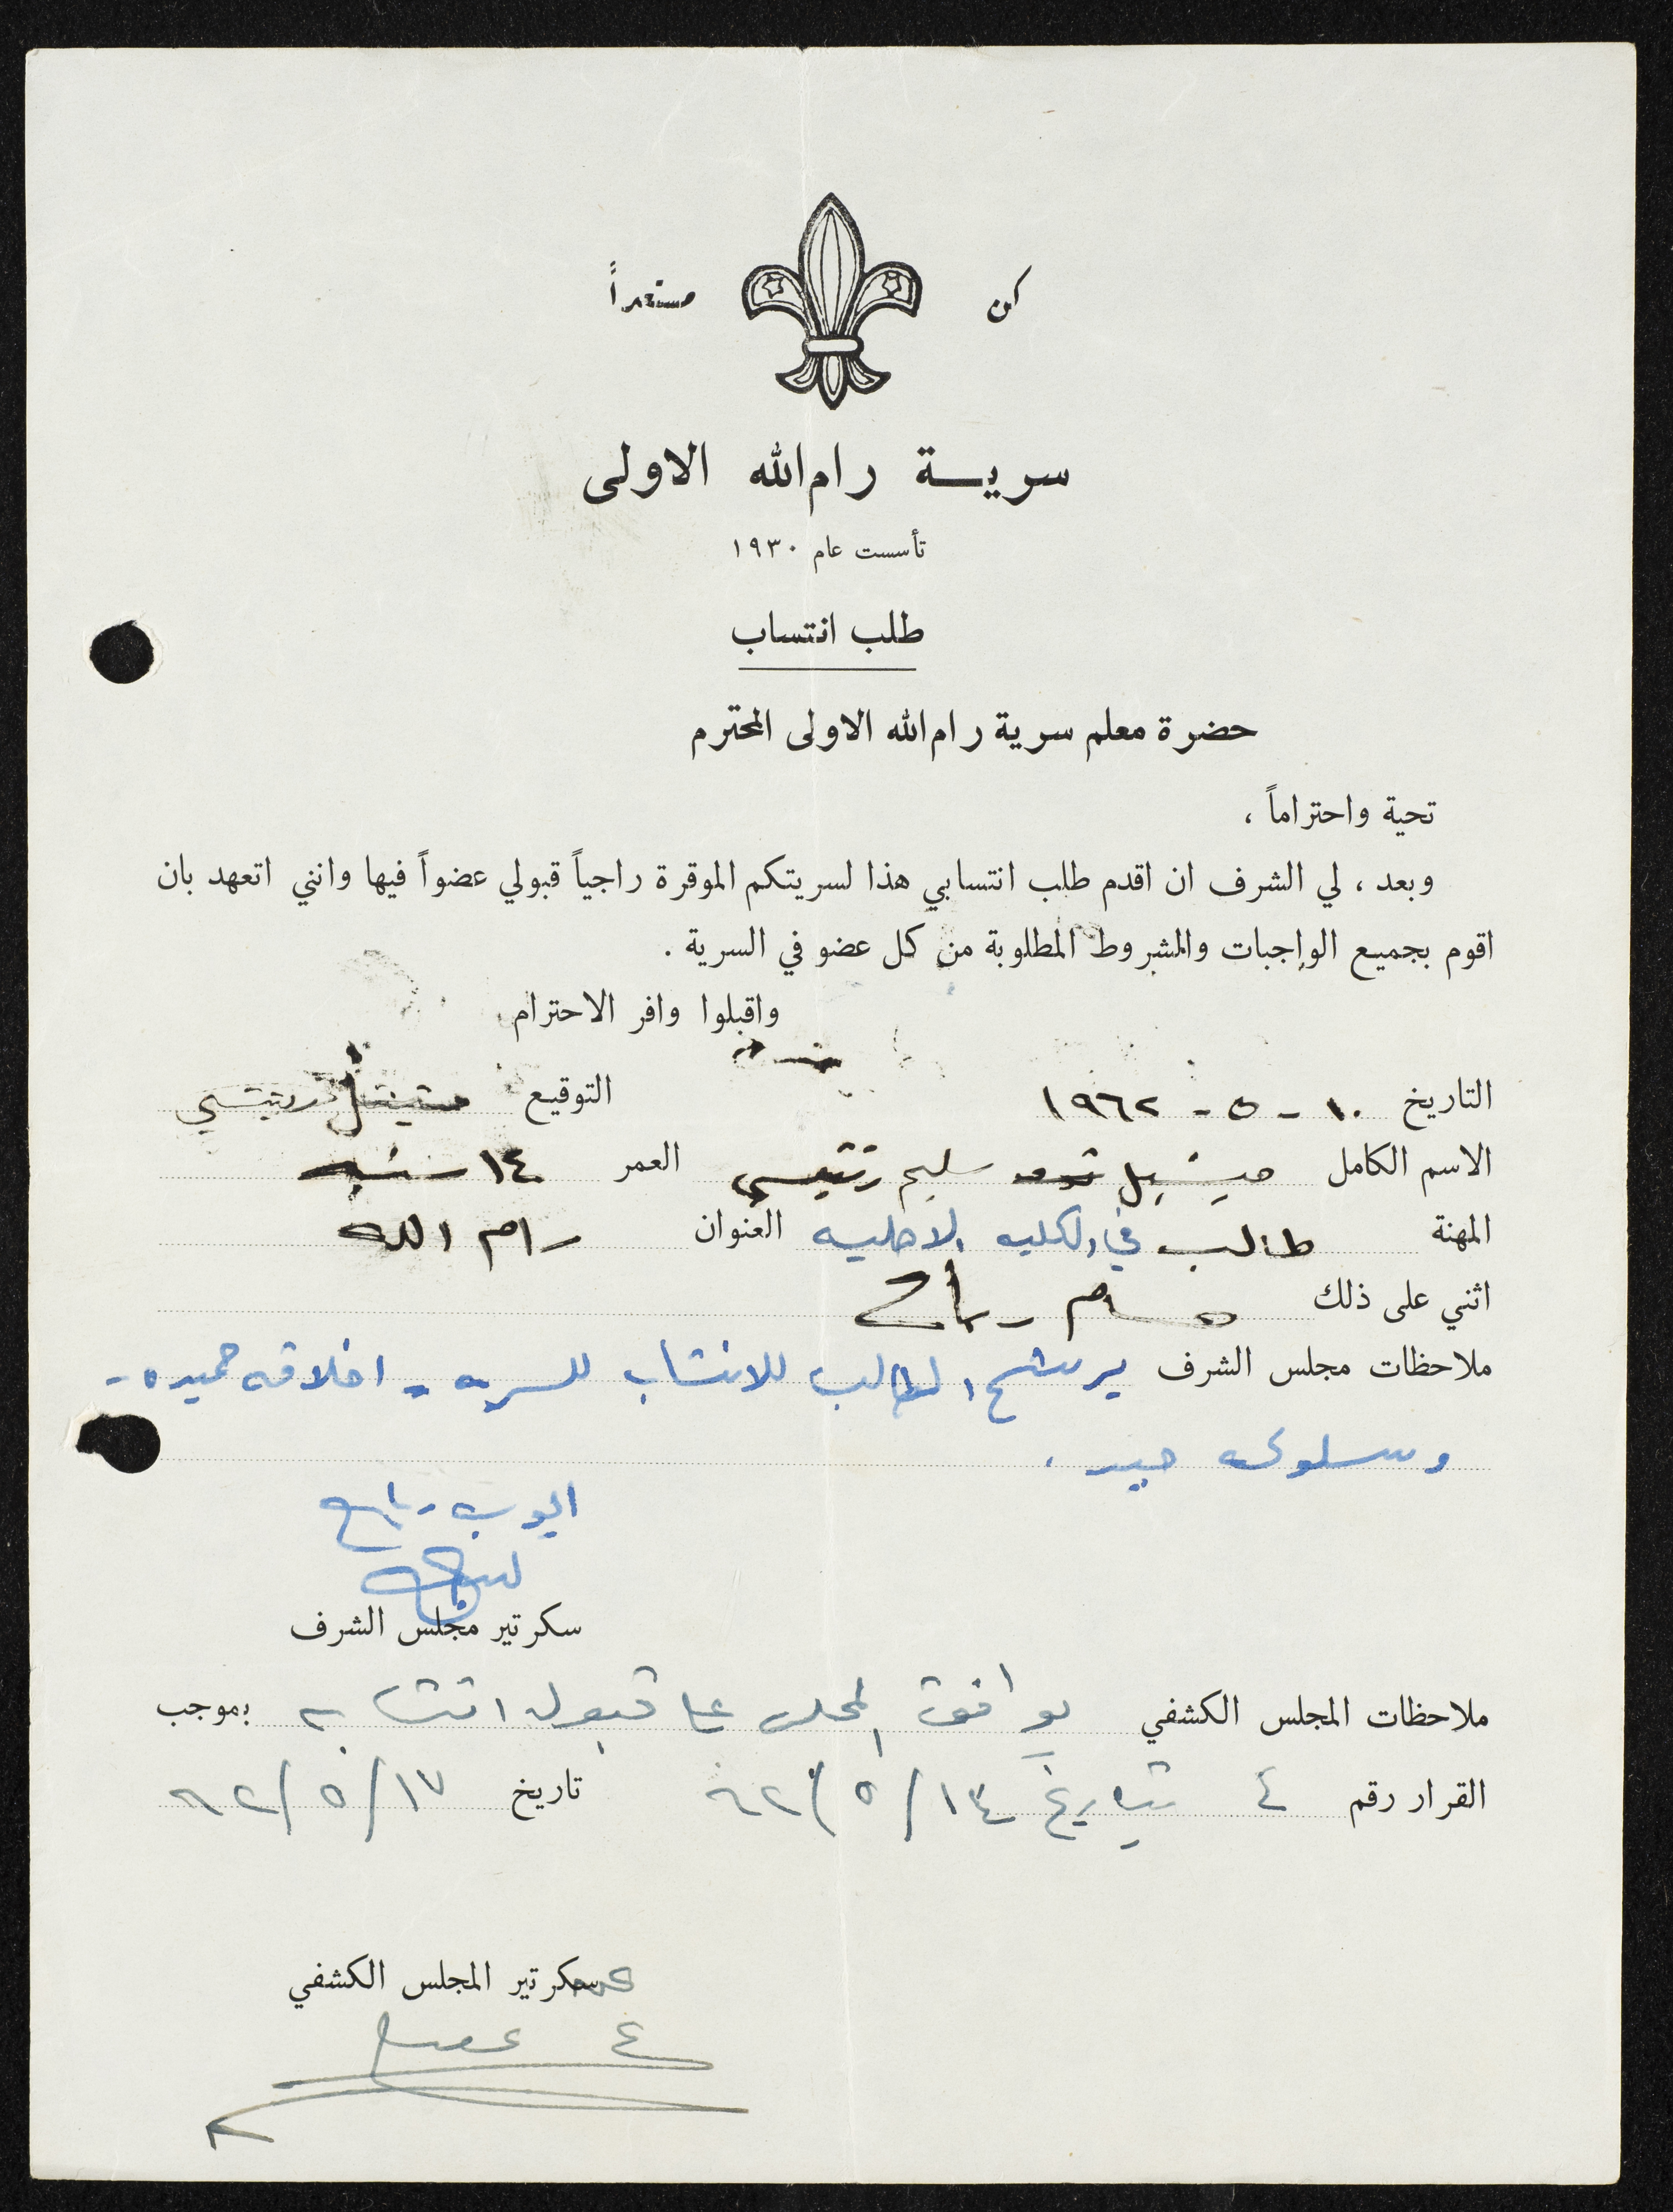 كن مستعداً
سرية رام الله الاولى
تأسست عام ١٩٣٠
طلب انتساب
حضرة معلم سرية رام الله الاولى المحترم
تحية واحتراماً ،
وبعد ، لي الشرف ان اقدم طلب انتسابي هذا لسريتكم الموقرة راجياً قبولي عضواً فيها وانني اتعهد بان
اقوم بجميع الواجبات والشروط المطلوبة من كل عضو في السرية .
واقبلوا وافر الاحترام
التاريخ ١٠ - ٥ - ١٩٦٢ التوقيع
الاسم الكامل ميشيل سليم زتيسي العمر ١٤ سنه
المهنة طالب في الكليه الاهليه العنوان رام الله
اثني على ذلك
ملاحظات مجلس الشرف يرشح الطالب للانتساب للسريه - اخلاقه حميده -
وسلوكه جيد .
ايوب رباح
سكرتير مجلس الشرف
ملاحظات المجلس الكشفي يوافق المجلس على قبول انتسابه بموجب
القرار رقم ٤ بتاريخ ١٤/٥/٦٢ تاريخ ١٧/٥/٦٢
سكرتير المجلس الكشفي